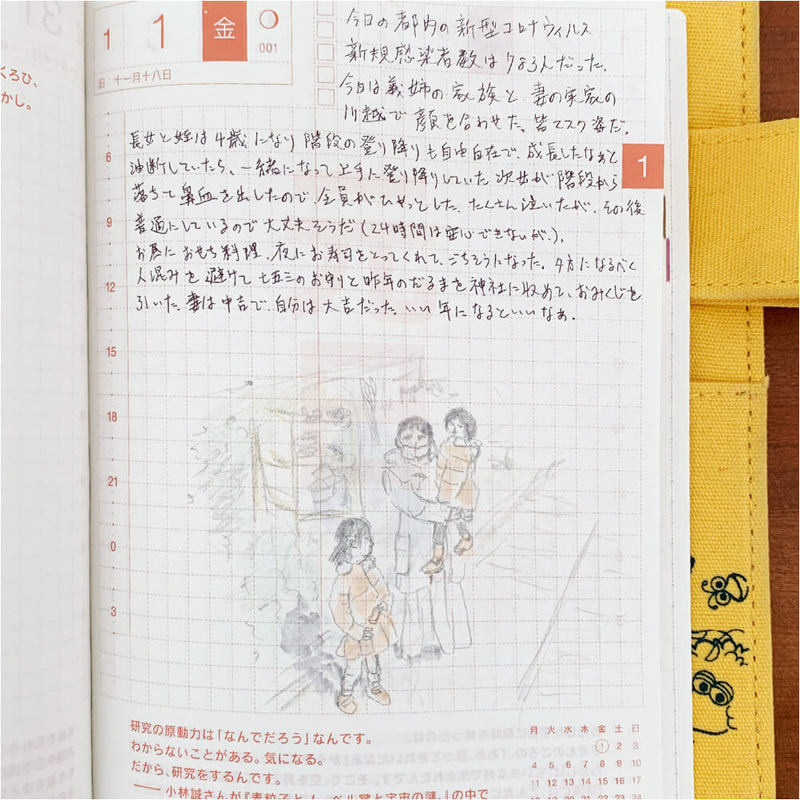 くろひ、
かし。
1 1 金 001
旧:十一月十八日
今日の都内の新型コロナウィルス
新規感染者数は783人だった。
今日は義姉の家族と、妻の実家の
川越で顔を合わせた。皆マスク姿だ。
長女と姪は4歳になり階段の登り降りも自由自在で、成長したなぁと
油断していたら、一緒になって上手に登り降りしていた次女が階段から
落ちて鼻血を出したので全員がひやっとした。たくさん泣いたが、その後
普通にしているので大丈夫そうだ(24時間は安心できないが)。
お昼におもち料理、夜にお寿司をとってくれて、ごちそうになった。夕方になるべく
人混みを避けて七五三のお守りと昨年のだるまを神社に収めて、おみくじを
引いた。妻は中吉で、自分は大吉だった。いい年になるといいなぁ。
1
6
9
12
15
18
21
0
3
研究の原動力は「なんでだろう」なんです。
わからないことがある。気になる。
だから、研究をするんです。
——小林誠さんが『素粒子とノーベル賞と宇宙の謎。』の中で
月 火 水 木 金 土 日
1 2 3
4 5 6 7 8 9 10
11 12 13 14 15 16 17